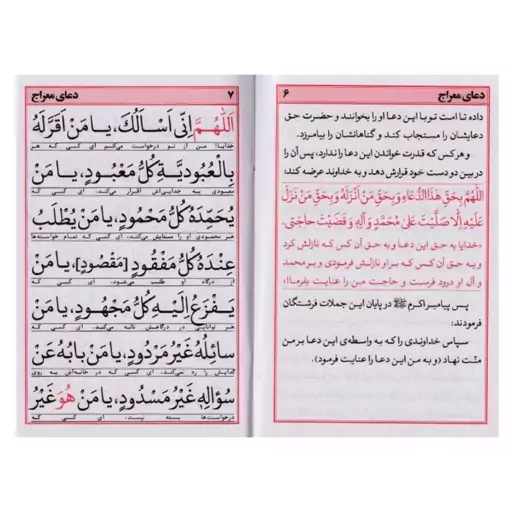 دعای معراج ۶
داده تا امت تو با این دعا او را بخوانند و حضرت حق
دعایشان را مستجاب کند و گناهانشان را بیامرزد.
و هر کس که قدرت خواندن این دعا را ندارد، پس آن را
در بین دو دست خود قرارش دهد و به خداوند عرضه کند:
اَللّٰهُمَّ بِحَقِّ هٰذَا الدُّعَاءِ وَ بِحَقِّ مَنْ اَنْزَلَهُ وَ بِحَقِّ مَنْ نَزَلَ
عَلَيْهِ اِلَّا صَلَّيْتَ عَلىٰ مُحَمَّدٍ وَ آلِهِ وَ قَضَيْتَ حَاجَتِى.
«خدایا به حق این دعا و به حق آن کس که نازلش کرد
و به حق آن کس که بر او نازلش فرمودی و بر محمد
و آل او درود فرست و حاجت من را عنایت بفرما!»
پس پیامبر اکرم ﷺ در پایان این جملات فرشتگان
فرمودند:
سپاس خداوندی را که به واسطه‌ی این دعا بر من
منّت نهاد (و به من این دعا را عنایت فرمود).
دعای معراج ۷
اَللّٰهُمَّ اِنّى اَسْاَلُكَ، يا مَنْ اَقَرَّ لَهُ
خدایا! من از تو درخواست می‌کنم ای کسی که هر
بِالْعُبُودِيَّةِ كُلُّ مَعْبُودٍ، يا مَنْ
معبودی به خدایی‌اش اقرار می‌کند، ای کسی که
يَحْمَدُهُ كُلُّ مَحْمُودٍ، يا مَنْ يَطْلُبُ
هر محمودی او را ستایش می‌کند، ای کسی که تمام خواسته‌ها
عِنْدَهُ كُلُّ مَفْقُودٍ [مَقْصُودٍ]، يا مَنْ
از درگاه او طلب می‌شود، ای کسی که
يَفْزَعُ اِلَيْهِ كُلُّ مَجْهُودٍ، يا مَنْ
هر توانایی در درگاهش ناله می‌کند، ای کسی که
سائِلُهُ غَيْرُ مَرْدُودٍ، يا مَنْ بابُهُ عَنْ
گدایش را رد نمی‌کند، ای کسی که در خانه‌اش به روی
سُؤالِهِ غَيْرُ مَسْدُودٍ، يا مَنْ هُوَ غَيْرُ
درخواست‌ها بسته نیست، ای کسی که